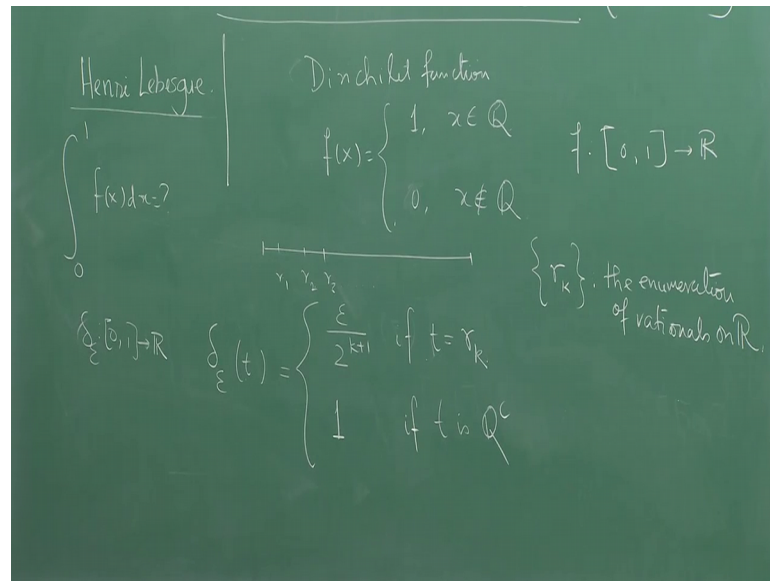 Henri Lebesgue.
∫₀¹ f(x)dx=?
Dirichilet function
f(x) = { 1, x ∈ Q
0, x ∉ Q
f: [0,1] → R
r₁ r₂ r₃
{r_k}. the enumeration
of rationals on R.
δ_ε: [0,1] → R
δ_ε(t) = { ε/2^{k+1} if t = r_k
1 if t is Q^c